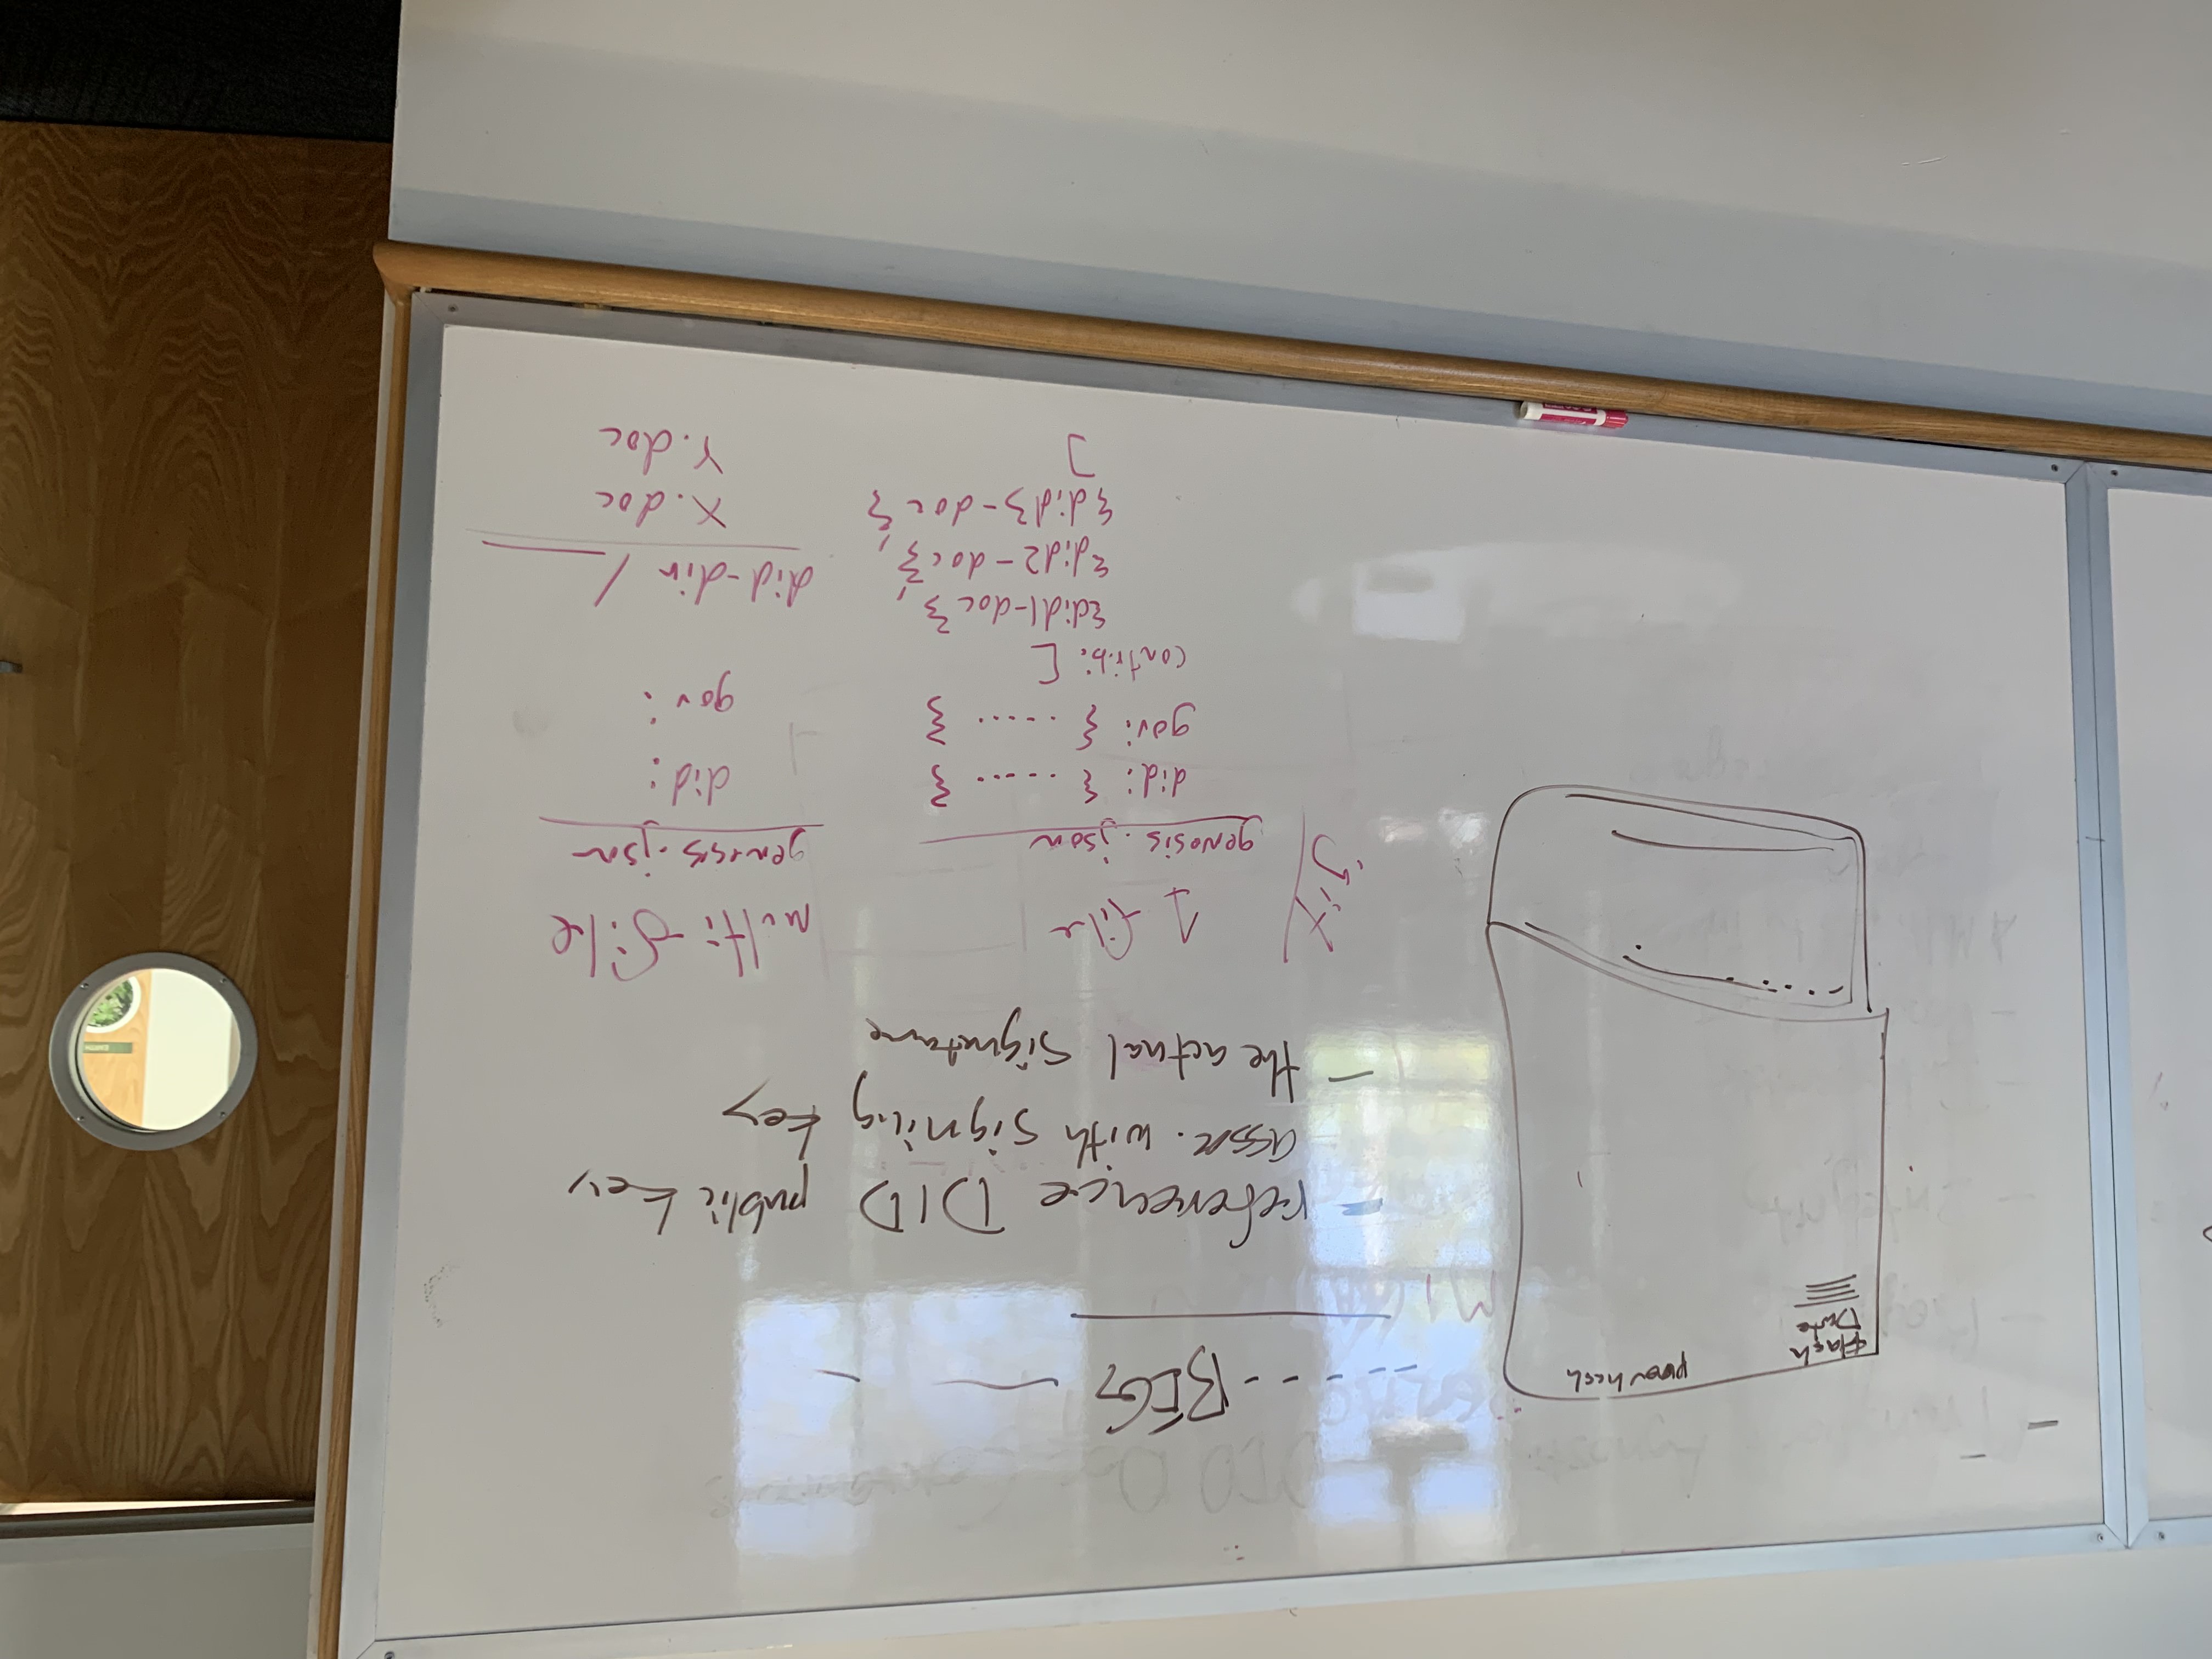 Hash
Date
prev hash
-----BEG
- reference DID public key
assoc. with signing key
- the actual signature
.git/
1 file
genesis.json
did: { ...... }
gov: { ...... }
contrib: [
{did1-doc},
{did2-doc},
{did3-doc}
]
multi-file
genesis.json
did:
gov:
did-dir /____
X.doc
Y.doc
EARTH